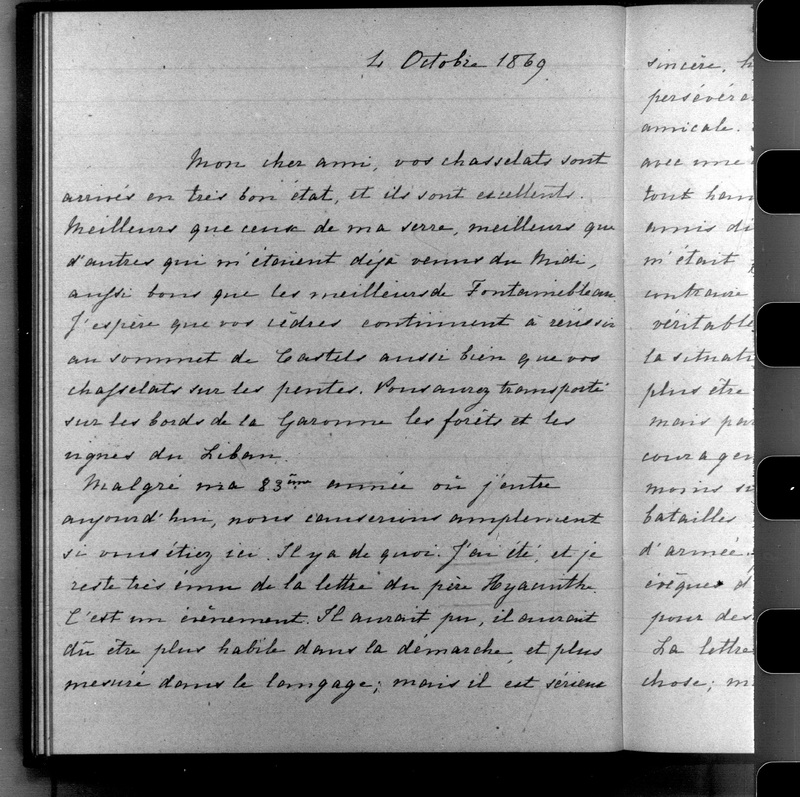 4 Octobre 1869
Mon cher ami, vos chasselats sont
arrivés en très bon état, et ils sont excellents.
Meilleurs que ceux de ma serre, meilleurs que
d'autres qui m'étaient déjà venus du Midi,
aussi bons que les meilleurs de Fontainebleau.
J'espère que vos cèdres continuent à réussir
au sommet de Castels aussi bien que vos
chasselats sur les pentes. Vous aurez transporté
sur les bords de la Garonne les forêts et les
vignes du Liban.
Malgré ma 83ème année où j'entre
aujourd'hui, nous causerions amplement
si vous étiez ici. Il y a de quoi. J'ai été, et je
reste très ému de la lettre du père Hyacinthe.
C'est un évènement. Il aurait pu, il aurait
dû être plus habile dans la démarche, et plus
mesuré dans le langage; mais il est sérieux
sincère,
persévéra
amicale.
avec une
tout hom
amis di
m'était
contraire
véritable
la situati
plus être
mais par
courageu
moins su
batailles
d'armée
évêques d
pour des
La lettre
chose; m